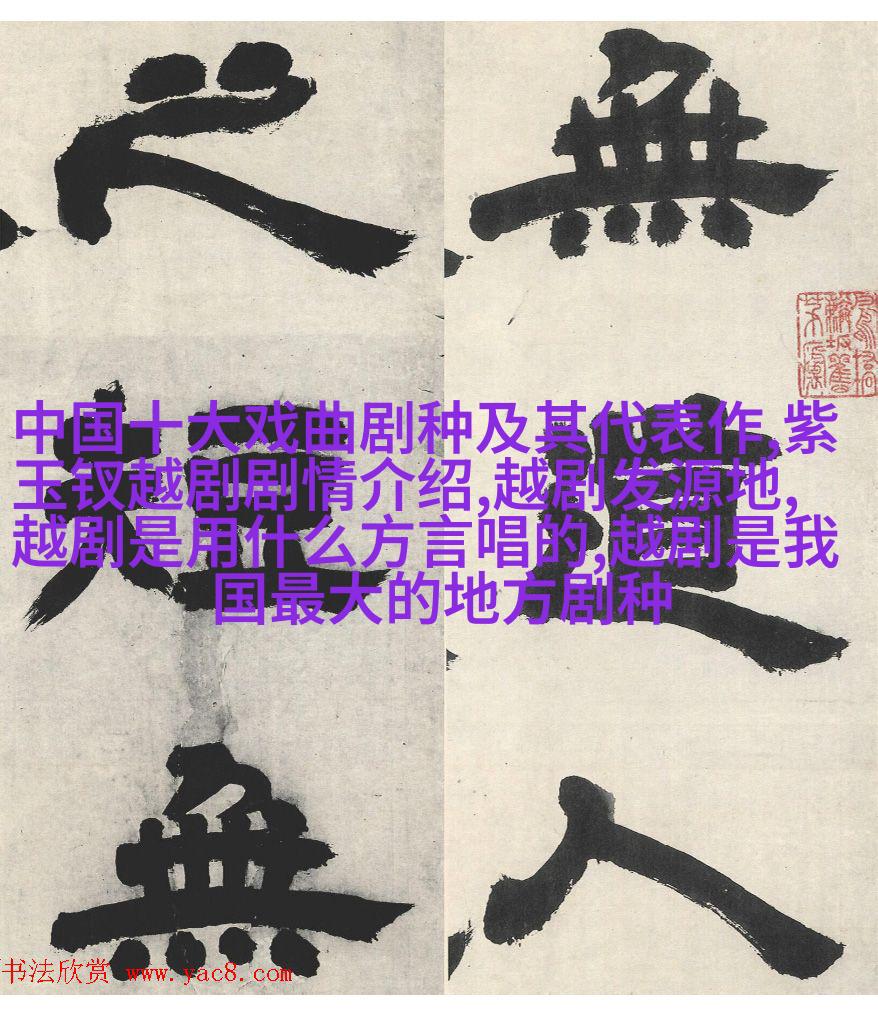 無道人
之短無
中国十大戏曲剧种及其代表作,紫
玉钗越剧剧情介绍,越剧发源地,
越剧是用什么方言唱的,越剧是我
国最大的地方剧种
书法欣赏 www.yac8.com